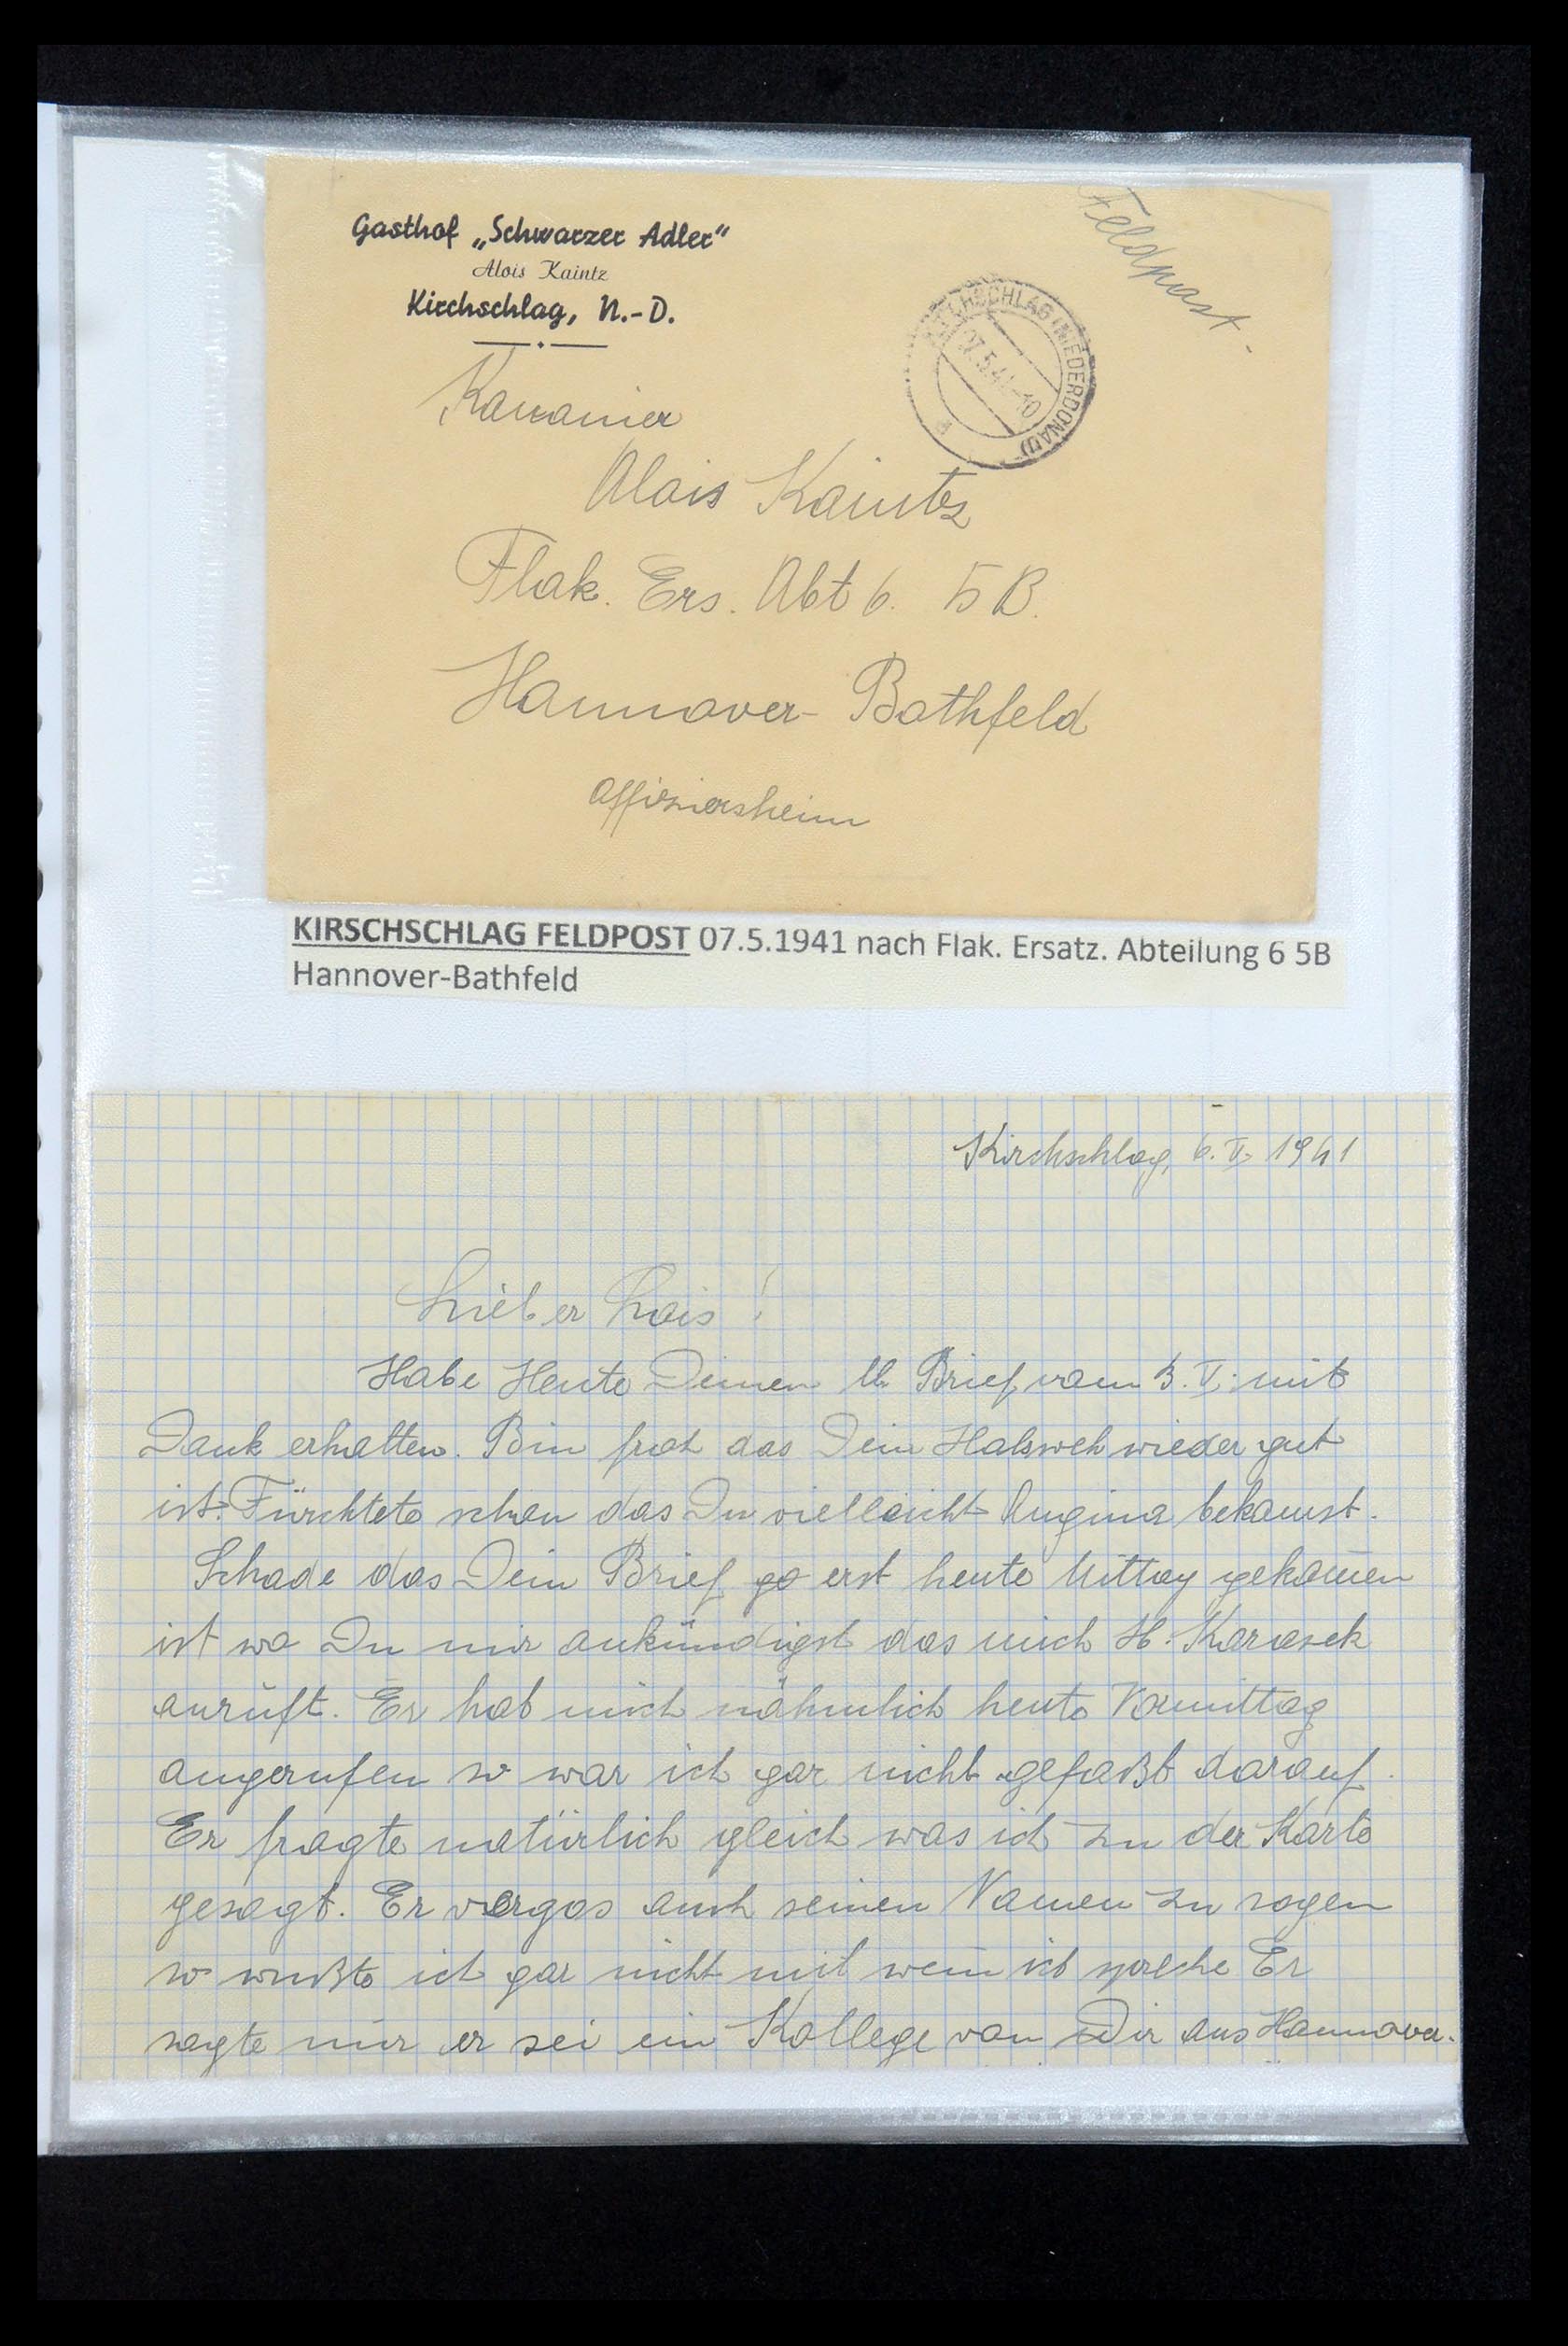 Gasthof „Schwarzer Adler"
Alois Kaintz
Kirchschlag, N.-D.
Feldpost.
KIRCHSCHLAG (NIEDERDONAU)
07.5.41-10
Kanonier
Alois Kaintz
Flak. Ers. Abt 6. 5 B.
Hannover-Bothfeld
Offiziersheim
KIRSCHSCHLAG FELDPOST 07.5.1941 nach Flak. Ersatz. Abteilung 6 5B
Hannover-Bathfeld
Kirchschlag, 6. V. 1941
Lieber Lois!
Habe Heute Deinen lb. Brief vom 3. V. mit
Dank erhalten. Bin froh das Dein Halsweh wieder gut
ist. Fürchtete schon das Du vielleicht Angina bekamst.
Schade das Dein Brief erst heute Mittag gekom̄en
ist wo Du mir ankündigst das mich H. Karasek
anruft. Er hat mich nähmlich heute Vormittag
angerufen so war ich gar nicht gefaßt darauf.
Er fragte natürlich gleich was ich zu der Karte
gesagt. Er vergas auch seinen Namen zu sagen
so wußte ich gar nicht mit wem ich spreche Er
sagte mir er sei ein Kollege von Dir aus Hannover.